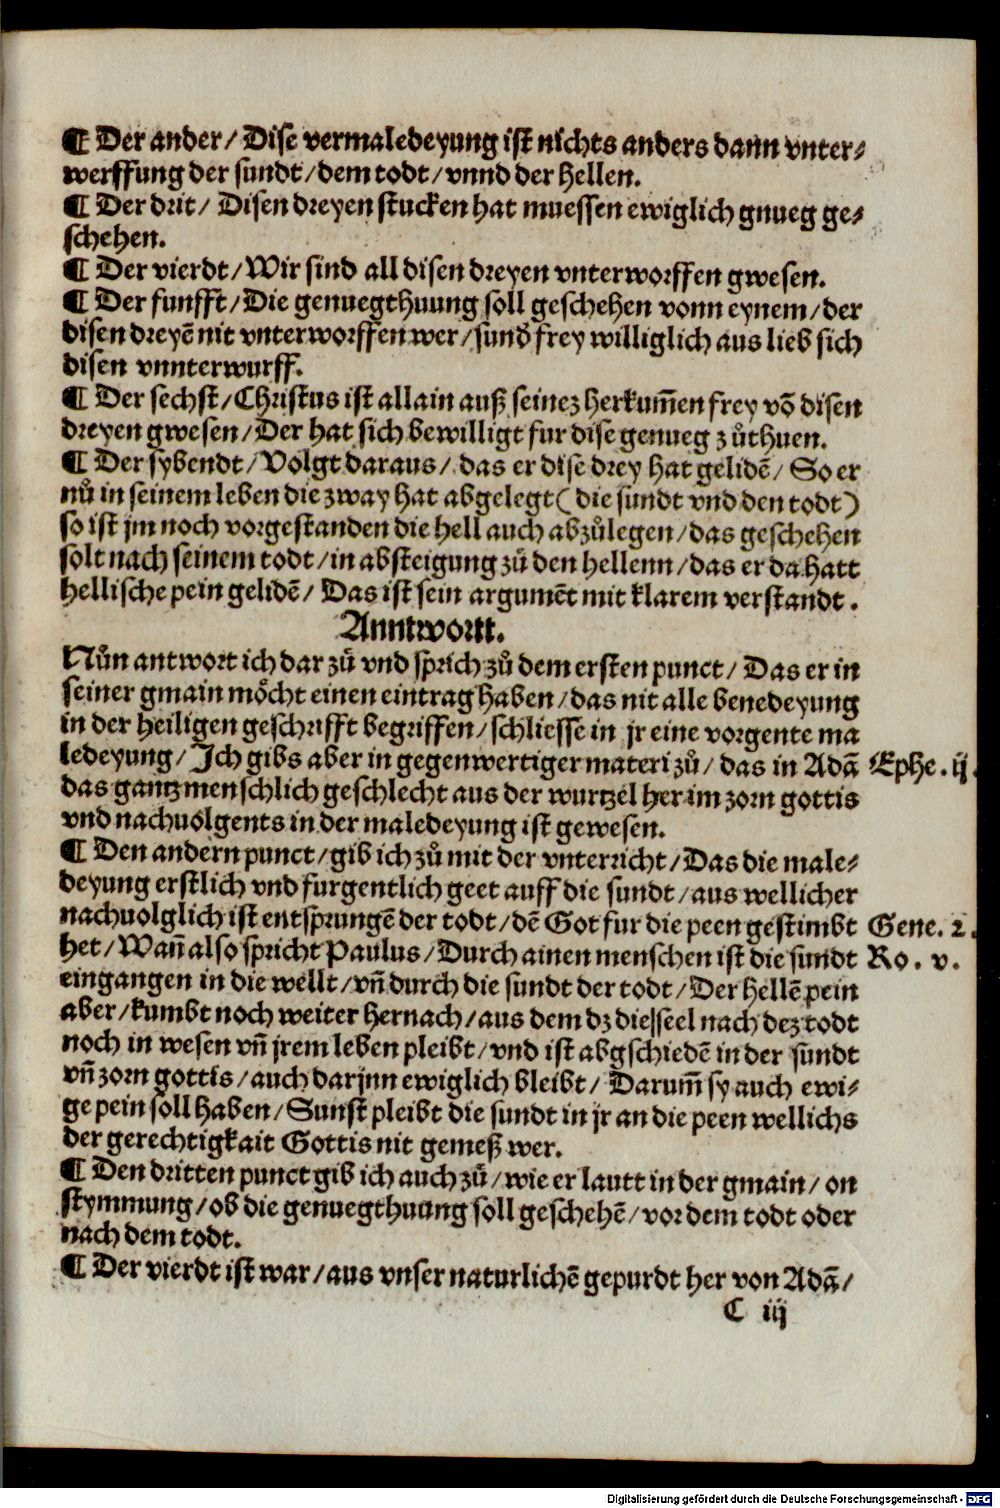 ¶ Der ander/ Dise vermaledeyung ist nichts anders dann vnter⸗
werffung der sundt/ dem todt/ vnnd der hellen.
¶ Der drit/ Disen dreyen stucken hat muessen ewiglich gnueg ge⸗
schehen.
¶ Der vierdt/ Wir sind all disen dreyen vnterworffen gwesen.
¶ Der funfft/ Die genuegthuung soll geschehen vonn eynem/ der
disen dreyē nit vnterworffen wer/ sund̕ frey williglich aus lieb sich
disen vnnterwurff.
¶ Der sechst/ Christus ist allain auß seinez herkum̄en frey võ disen
dreyen gwesen/ Der hat sich bewilligt fur dise genueg zůthuen.
¶ Der sybendt/ Volgt daraus/ das er dise drey hat gelidē/ So er
nů in seinem leben die zway hat abgelegt (die sundt vnd den todt)
so ist jm noch vorgestanden die hell auch abzůlegen/ das geschehen
solt nach seinem todt/ in absteigung zů den hellenn/ das er da hatt
hellische pein gelidē/ Das ist sein argumēt mit klarem verstandt.
Anntwortt.
Nůn antwort ich dar zů vnd sprich zů dem ersten punct/ Das er in
seiner gmain mo̊cht einen eintrag haben/ das nit alle benedeyung
in der heiligen geschrifft begriffen/ schliesse in jr eine vorgente ma
ledeyung/ Ich gibs aber in gegenwertiger materi zů/ das in Adā Ephe. ij.
das gantz menschlich geschlecht aus der wurtzel her im zorn gottis
vnd nachuolgents in der maledeyung ist gewesen.
¶ Den andern punct/ gib ich zů mit der vnterricht/ Das die male⸗
deyung erstlich vnd furgentlich geet auff die sundt/ aus wellicher
nachuolglich ist entsprungē der todt/ dē Got fur die peen gestimbt Gene. 2.
het/ Wañ also spricht Paulus/ Durch ainen menschen ist die sundt Ro. v.
eingangen in die wellt/ vñ durch die sundt der todt/ Der hellē pein
aber/ kumbt noch weiter hernach/ aus dem dz die seel nach dez todt
noch in wesen vñ jrem leben pleibt/ vnd ist abgschiedē in der sundt
vñ zorn gottis/ auch darjnn ewiglich bleibt/ Darum̄ sy auch ewi⸗
ge pein soll haben/ Sunst pleibt die sundt in jr an die peen wellichs
der gerechtigkait Gottis nit gemeß wer.
¶ Den dritten punct gib ich auch zů/ wie er lautt in der gmain/ on
stymmung/ ob die genuegthuung soll geschehē/ vor dem todt oder
nach dem todt.
¶ Der vierdt ist war/ aus vnser naturlichē gepurdt her von Adā/
C iij
Digitalisierung gefördert durch die Deutsche Forschungsgemeinschaft - DFG